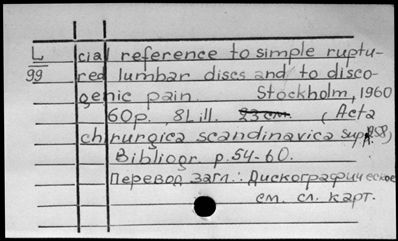 L
99
cial reference to simple ruptu-
red lumbar discs and to disco-
genic pain. Stockholm, 1960
60p. 8L ill. 23 cm. (Acta
chirurgica scandinavica Suppl.
Bibliogr. p. 54-60.
Перевод загл.: Дискографическое
см. сл. карт.